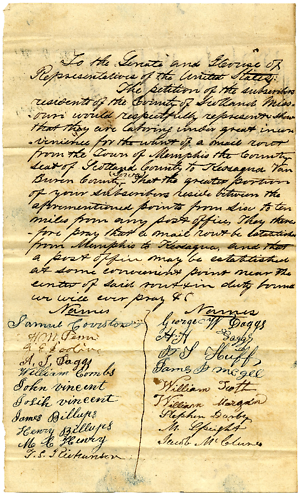 To the Senate and House of
Representatives of the United States
The petition of the subscribers
residents of the County of Scotland Miss-
ouri would respectfully represent
that they are laboring under great incon
venience for the want of a mail rout
from the Town of Memphis the County
Seat of Scotland County to Keosaqua Van
Buren County the greater portion
of your subscribers reside between the
aforementioned points from to ten
miles from any post office, They there-
fore pray that a mail rout be
from Memphis to Keosaqua, and that
a post office may be established
at some convenient point near the
center of said rout & in duty bound
we will ever pray &C
Names
Names
Samuel
George W Daggs
H. H.
A. S. Daggs
William Combs
James McGee
John Vincent
William Tott
Josiah Vincent
William
James Billups
Stephen Darby
Henry Billups
M. Speight
M. R. Henry
Jacob McClune